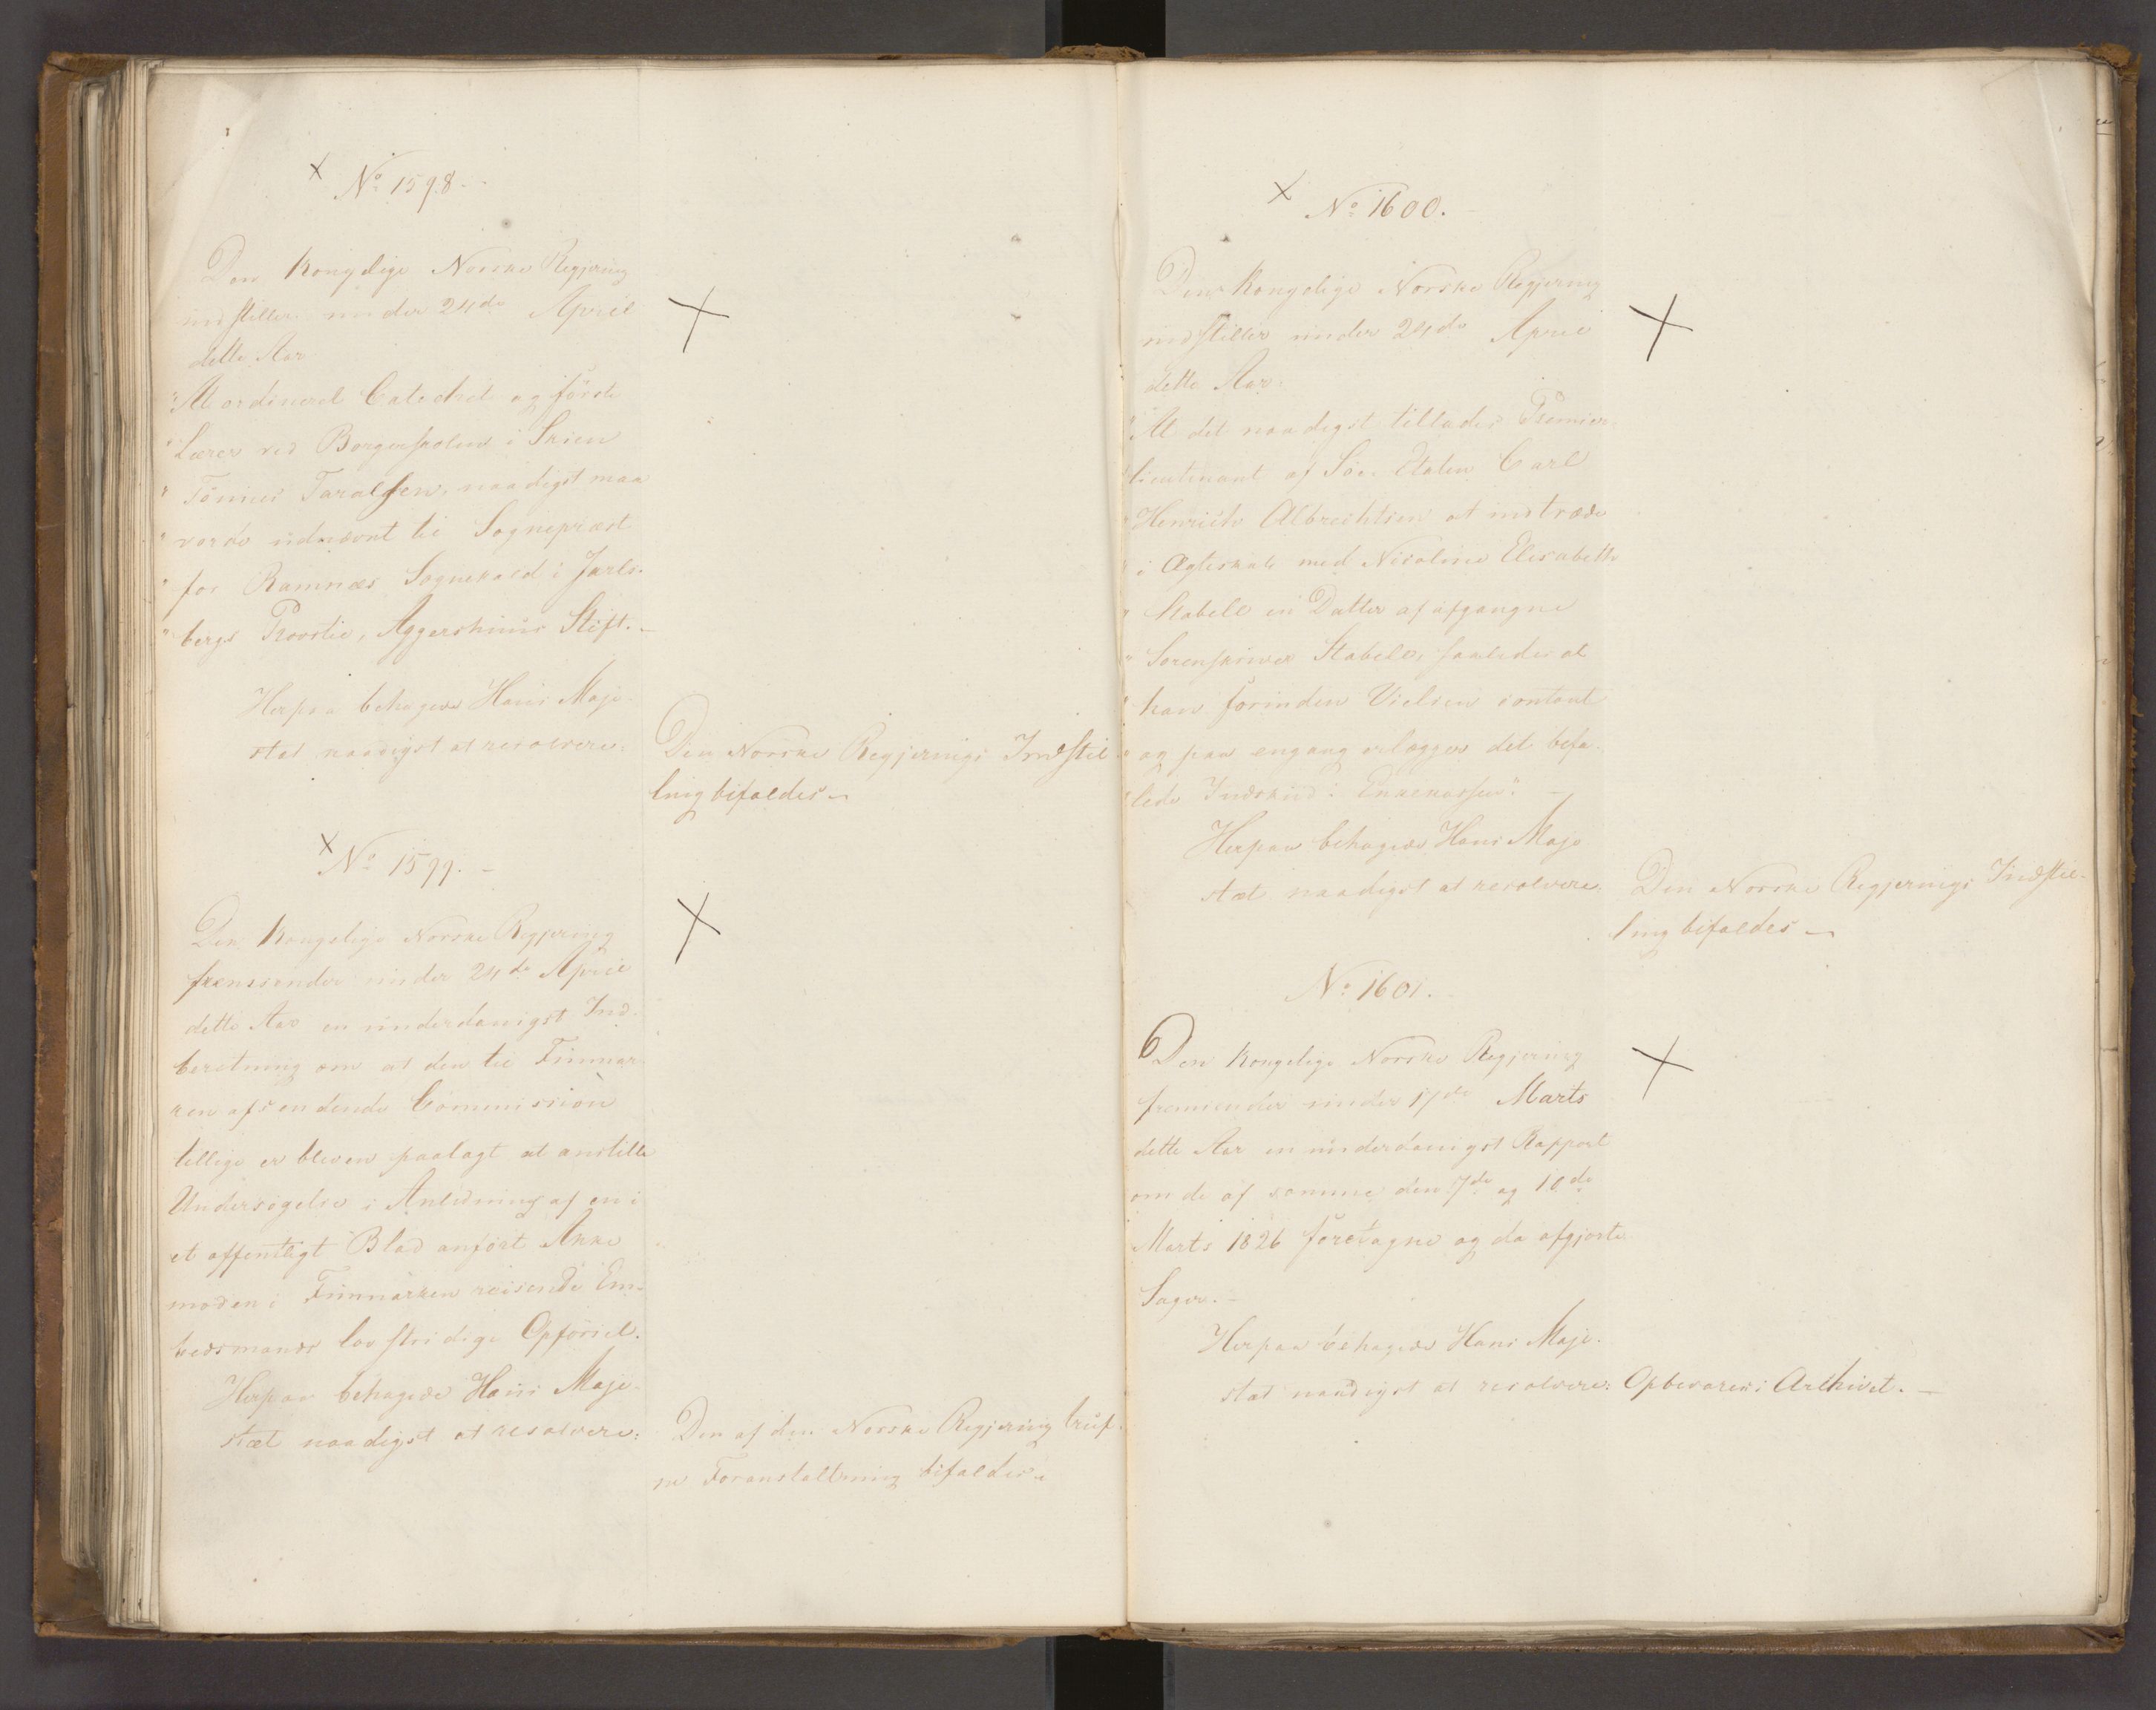 No 1598.
Den Kongelige Norske Regjering
indstiller under 24de April
dette Aar
"At ordineret Catechet og første
"Lærer ved Borgerskolen i Skien
"Tönnes Taralsen, naadigst maa
"vorde udnævnt til Sognepræst
"for Ramnæs Sognekald i Jarls-
"bergs Provstie, Aggershuus Stift.
Herpaa behagede Hans Maje-
stæt naadigst at resolvere:
Den Norske Regjerings Indstil-
ling bifaldes
No 1599.
Den Kongelige Norske Regjering
fremsender under 24de April
dette Aar en underdanigst Ind-
beretning om at den til Finmar-
ken afsendende Commission
tillige er bleven paalagt at anstille
Undersøgelse i Anledning af en i
et offentligt Blad anført Anke
mod en i Finmarken reisende Em-
bedsmands lovstridige Opförsel.
Herpaa behagede Hans Maje-
stæt naadigst at resolvere:
Den af den Norske Regjering truf-
ne Foranstaltning bifaldes
No 1600.
Den Kongelige Norske Regjering
indstiller under 24de April
dette Aar.
"At det naadigst tillades Premier-
"lieutenant af Söe-Etaten Carl
"Henrich Albrechtsen at indtræde
"i Ægteskab med Nicoline Elisabeth
"Stabell en Datter af afgangne
"Sorenskriver Stabell, saaledes at
"han forinden Vielsen contant
"og paa engang erlægger det befa-
"lede Indskud i Enkekassen".
Herpaa behagede Hans Maje-
stæt naadigst at resolvere:
Den Norske Regjerings Indstil-
ling bifaldes
No 1601.
Den Kongelige Norske Regjering
fremsender under 17de Marts
dette Aar en underdanigst Rapport
om de af samme den 7de og 10de
Marts 1826 foretagne og da afgjorte
Sager.
Herpaa behagede Hans Maje-
stæt naadigst at resolvere:
Opbevares i Archivet.